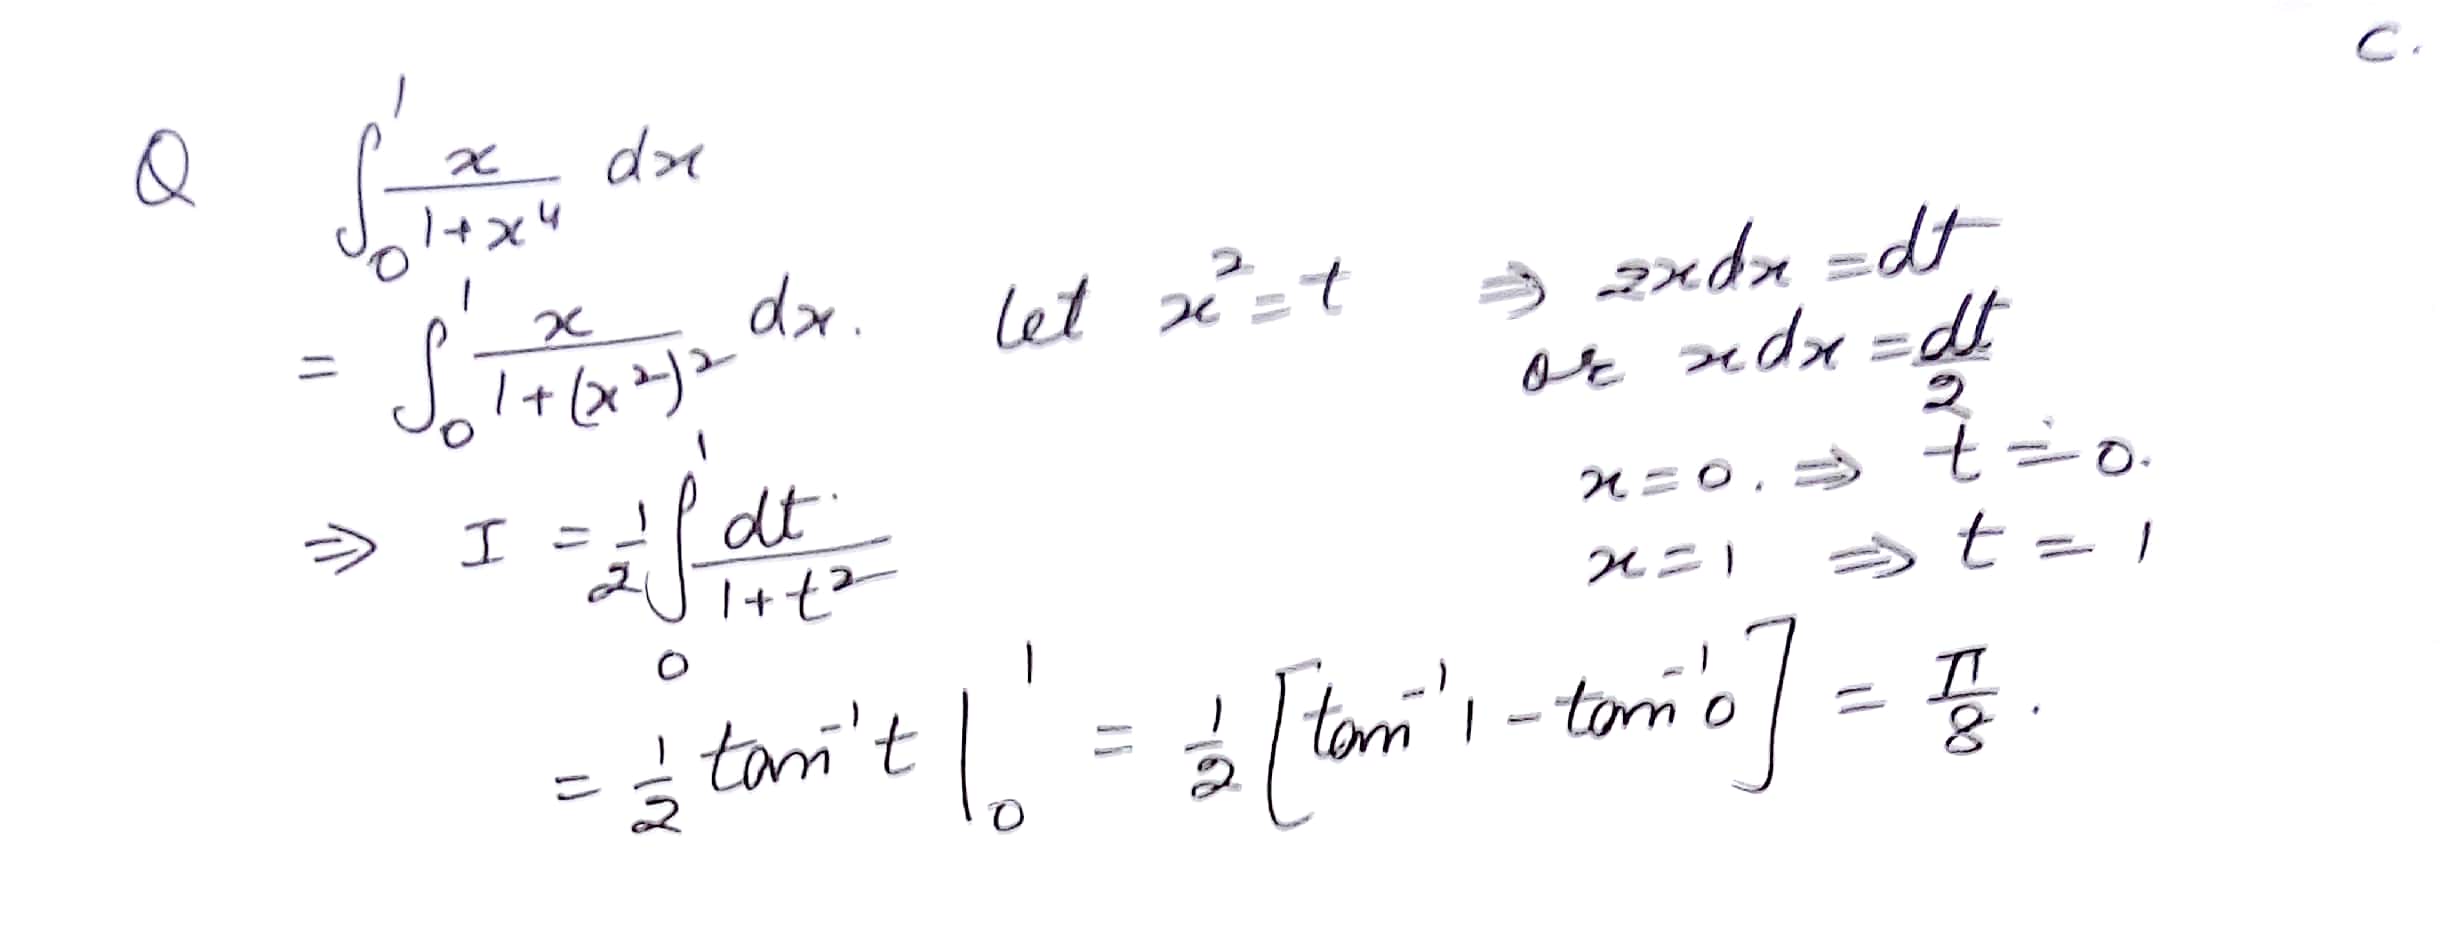 C.
Q ∫₀¹ x/(1+x⁴) dx
= ∫₀¹ x/(1+(x²)²) dx. Let x² = t ⇒ 2xdx = dt
or xdx = dt/2
x = 0. ⇒ t = 0.
⇒ I = 1/2 ∫₀¹ dt/(1+t²) x = 1 ⇒ t = 1
= 1/2 tan⁻¹t |₀¹ = 1/2 [tan⁻¹1 - tan⁻¹0] = π/8.